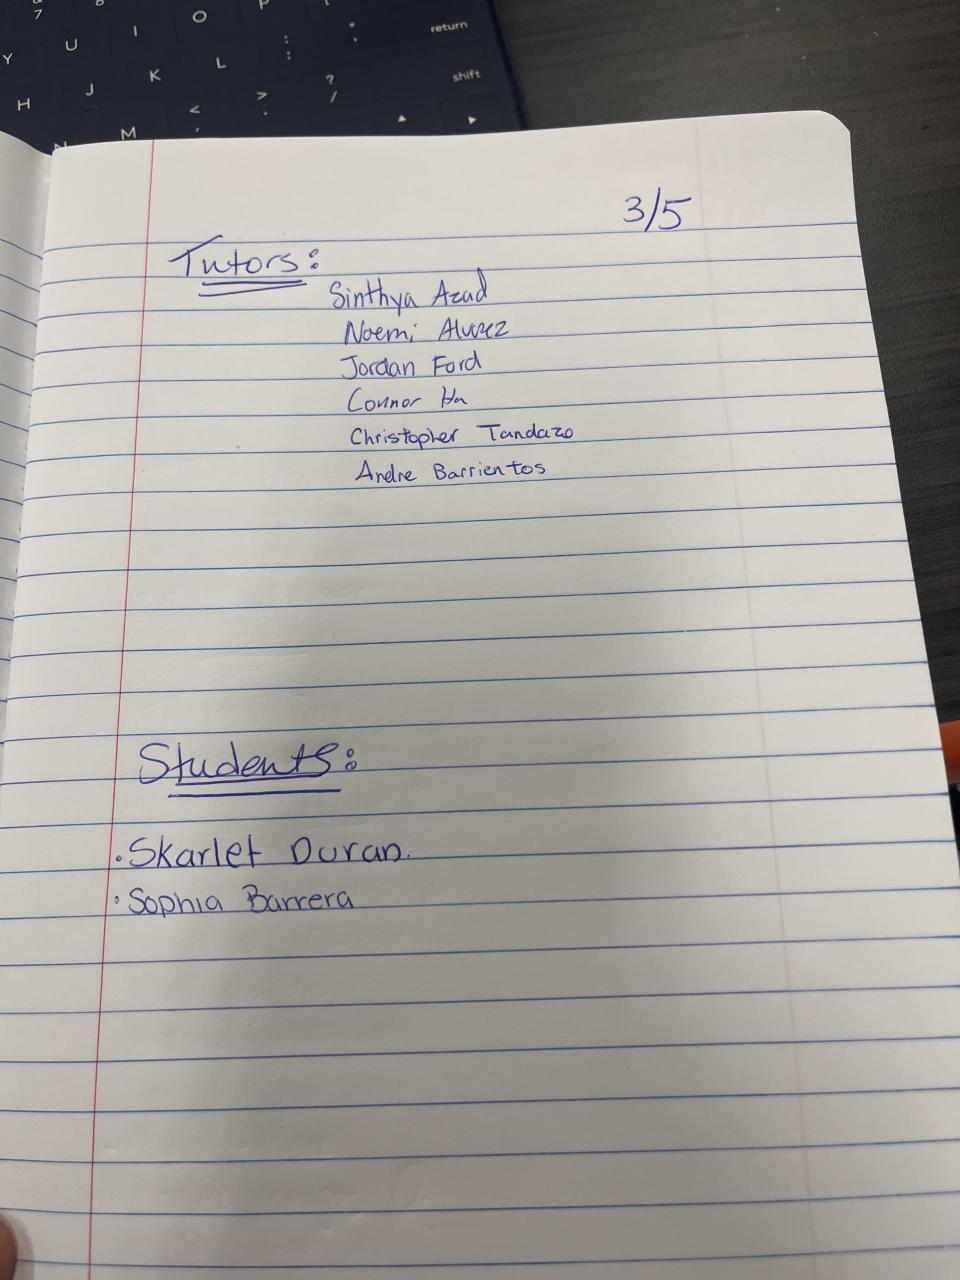 7 8 P
Y U I O : ; " ' return
H J K L < , > . ? / shift
N M
3/5
Tutors:
Sinthya Azad
Noemi Alvarez
Jordan Ford
Connor Ha
Christopher Tandazo
Andre Barrientos
Students:
· Skarlet Duran.
· Sophia Barrera